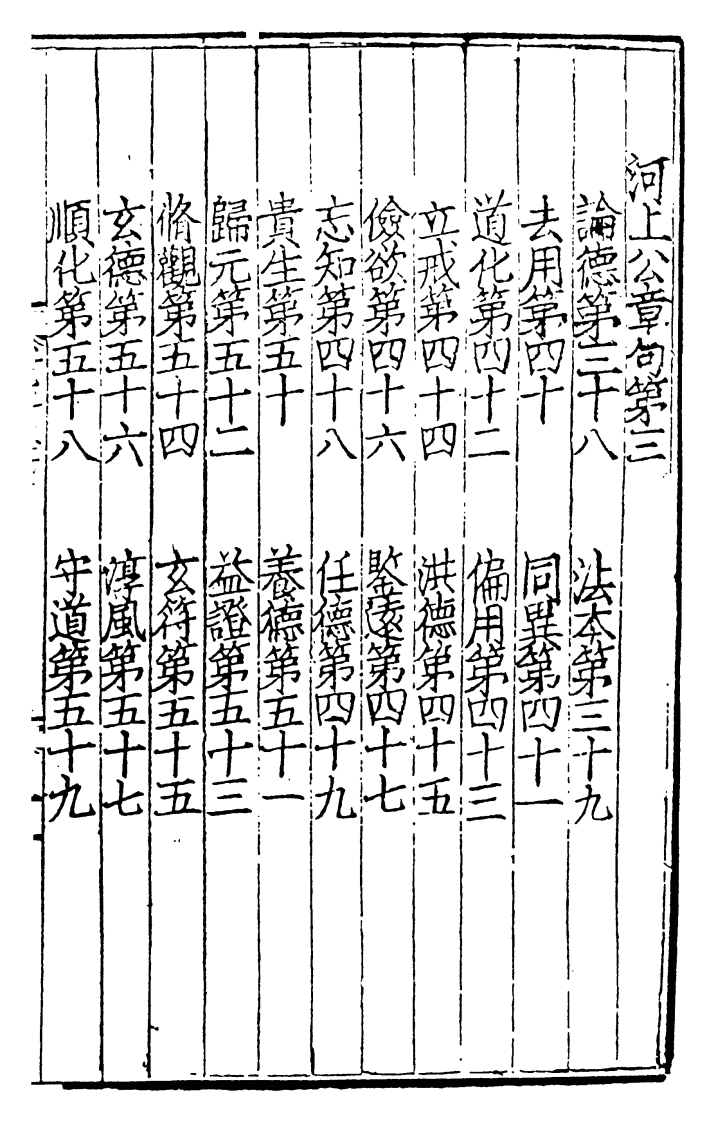 河上公章句第三
論德第三十八　法本第三十九
去用第四十　同異第四十一
道化第四十二　偏用第四十三
立戒第四十四　洪德第四十五
儉欲第四十六　鑒遠第四十七
忘知第四十八　任德第四十九
貴生第五十　養德第五十一
歸元第五十二　益證第五十三
脩觀第五十四　玄符第五十五
玄德第五十六　淳風第五十七
順化第五十八　守道第五十九